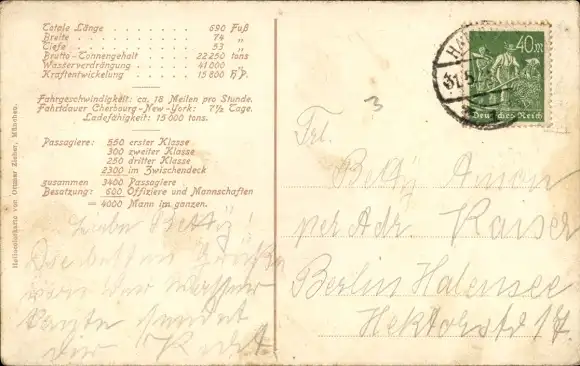 Totale Länge . . . . . . . . 690 Fuß
Breite . . . . . . . . . . 74 „
Tiefe . . . . . . . . . . 53 „
Brutto-Tonnengehalt . . . . 22250 tons
Wasserverdrängung . . . . 41000 „
Kraftentwickelung . . . . 15800 H.P.
Fahrgeschwindigkeit: ca. 18 Meilen pro Stunde.
Fahrtdauer Cherbourg-New-York: 7½ Tage.
Ladefähigkeit: 15000 tons.
Passagiere: 550 erster Klasse
300 zweiter Klasse
250 dritter Klasse
2300 im Zwischendeck
zusammen 3400 Passagiere
Besatzung: 600 Offiziere und Mannschaften
= 4000 Mann im ganzen.
Liebe Betty!
Die besten Grüße
von der
sendet
dir
40 M
Deutsches Reich
31.5.
3
Frl.
Betty Amon
per Adr. Kaiser
Berlin Halensee
Hektorstr 17.
Heliocolorkarte von Ottmar Zieher, München.